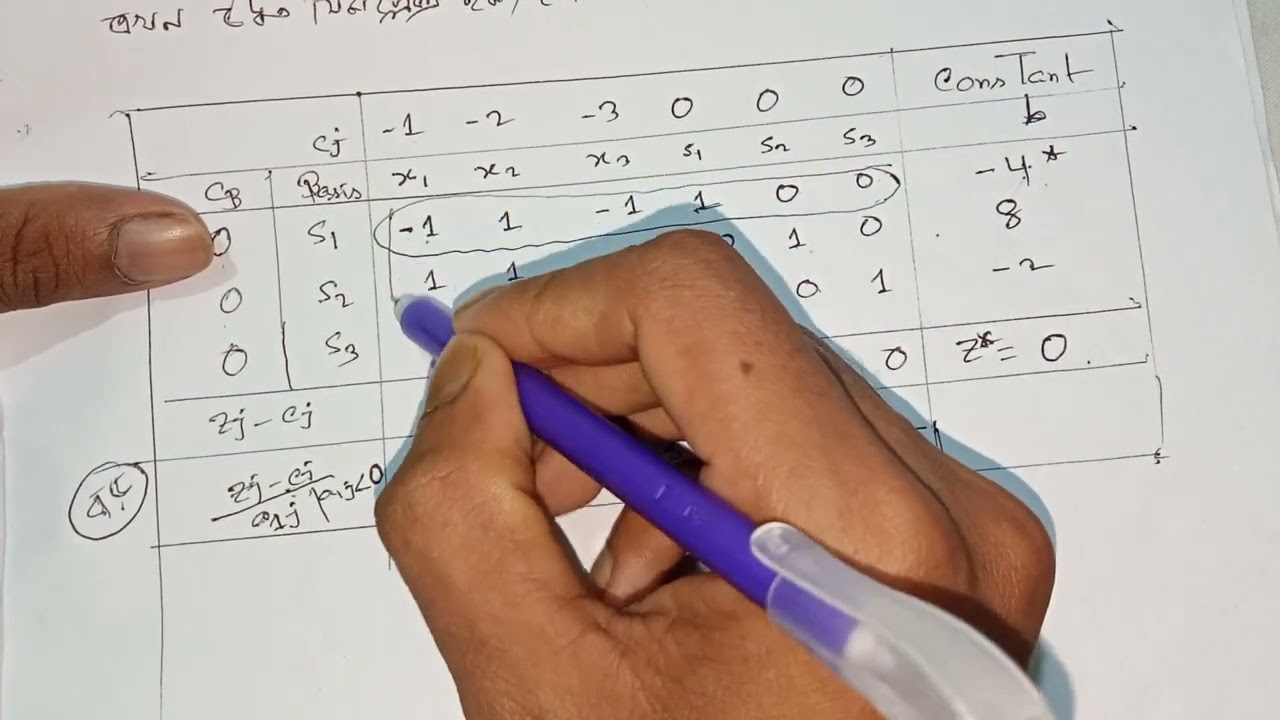 এখন
cj -1 -2 -3 0 0 0 ConsTant
CB Basis x1 x2 x3 s1 s2 s3 b
0 S1 -1 1 -1 1 0 0 -4*
0 S2 1 1 1 0 8
0 S3 0 1 -2
zj-cj 0 z*= 0.
zj-cj
a1j a1j<0